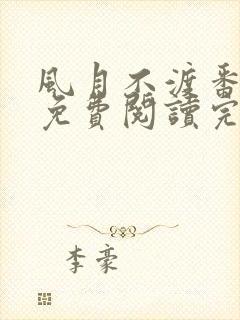 風月不渡番
免費閱讀完
李豪